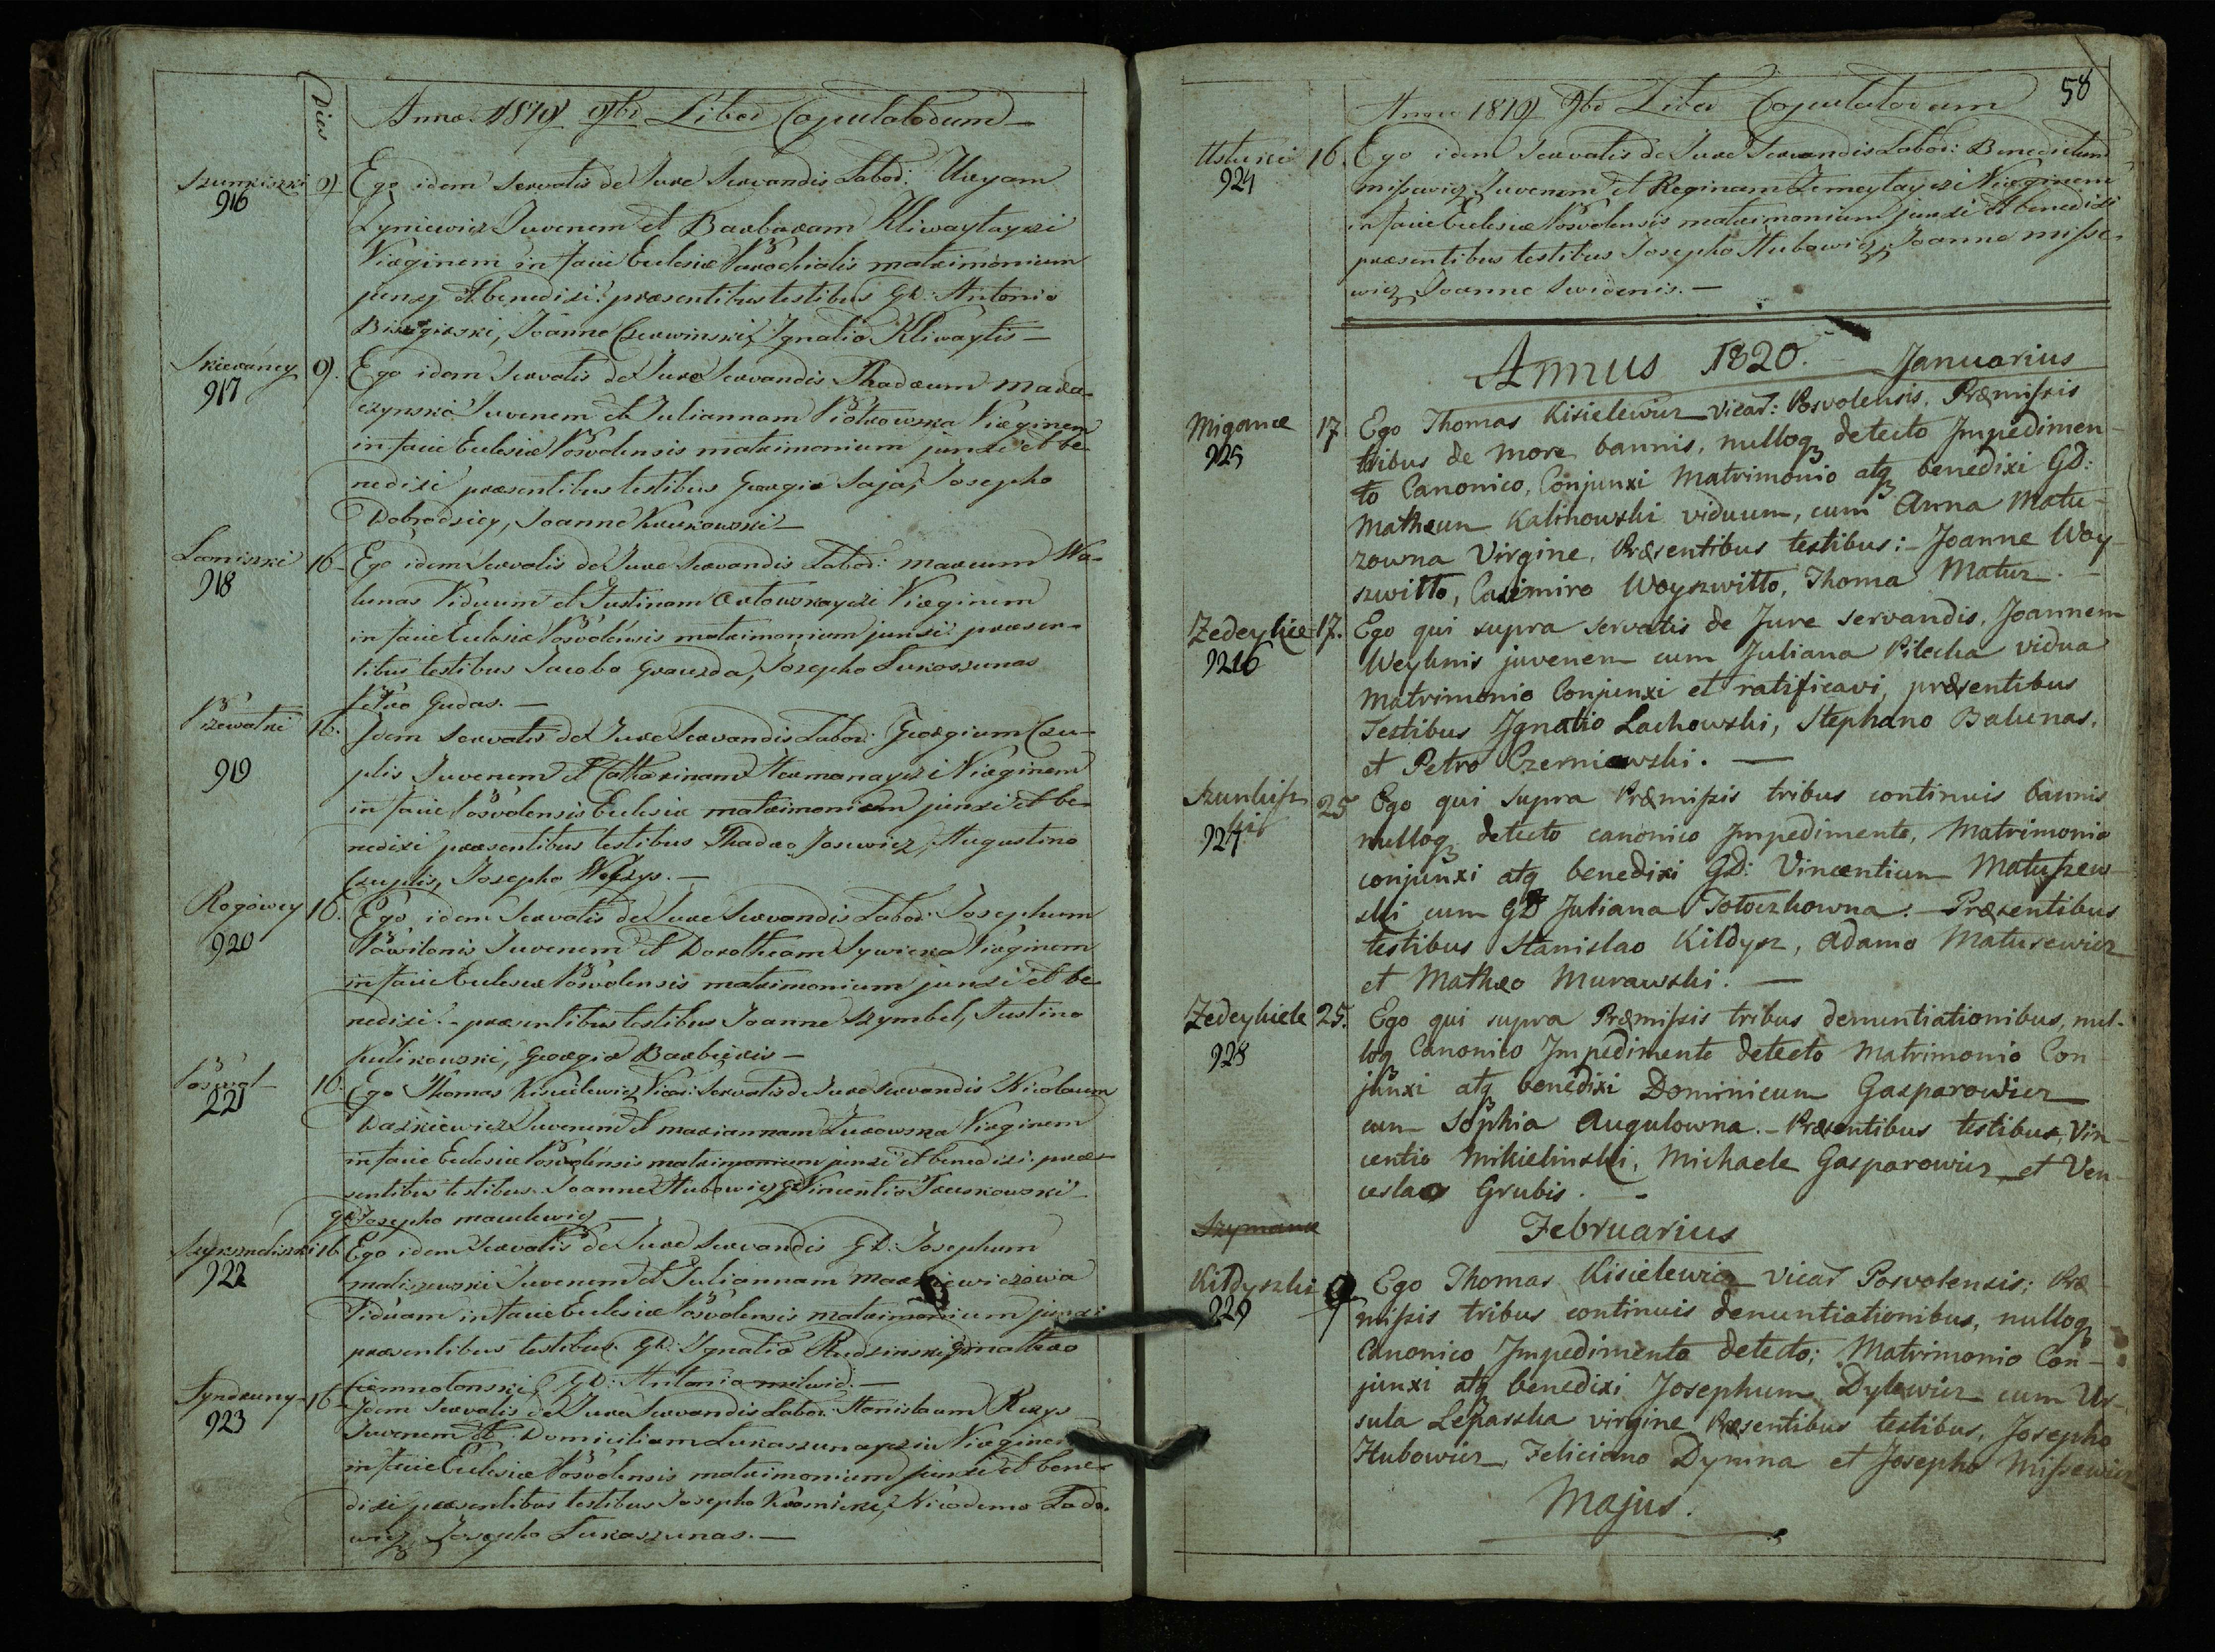 Dies
Anno 1819 9bris Liber Copulatorum
Szunkiszki 9
916
Ego idem Servatis de Jure Servandis Labor: Uryam
Lyniewicz Juvenem et Barbaram Kliwaytayczi
Virginem in facie Eclesiæ Parochialis matrimonium
junxi et benedixi: præsentibus testibus GD: Antonio
Joanne Czerwinski, Ignatio Kliwaytis —
917
9.
Ego idem Servatis de Jure Servandis Thadeum Mara-
czynski Juvenem et Juliannam Piotrowska Virginem
in facie Eclesiæ Posvolensis matrimonium junxi et be-
nedixi præsentibus testibus Georgio Saja, Josepho
Dobrodziey, Joanne Krukowski —
Leoniszki
918
16 –
Ego idem Servatis de Jure Servandis Labor: Marcum Wa-
lunas Viduum et Justinam Virginem
in facie Eclesiæ Posvolensis matrimonium junxi præsen-
tibus testibus Jacobo Grauzda, Josepho Lukoszunas
Petro Gudas. —
919
16.
Idem Servatis de Jure Servandis Labor: Georgium Czu-
plis Juvenem et Catharinam Hermanayczi Virginem
in facie Posvolensis Eclesiæ matrimonium junxi et be-
nedixi præsentibus testibus Thadeo Josewicz, Augustino
Czuplis, Josepho —
Rogowey
920
16.
Ego idem Servatis de Jure Servandis Labor: Josephum
Pawilonis Juvenem et Dorotheam Sywicka Virginem
in facie Eclesiæ Posvolensis matrimonium junxi et be-
nedixi. – præsentibus testibus Joanne Szymbel, Justino
Kulikowski, Georgio Barbieris —
Poswol
221
16.
Ego Thomas Kisielewicz Vicar: Servatis de Jure Servandis Nicolaum
Daszkiewicz Juvenem et Mariannam Zukowska Virginem
in facie Eclesiæ Posvolensis matrimonium junxi et benedixi. præ-
sentibus testibus. Joanne Hubowicz, GD Vincentio Truskowski
GD Josepho Maculewicz —
922
16
Ego idem Servatis de Jure Servandis GD: Josephum
Maliszewski Juvenem et Juliannam Markiewiczowa
Viduam in facie Eclesiæ Posvolensis matrimonium junxi
præsentibus testibus. GD: Ignatio Rudzinski, GD Matheo
Ciemnolonski, GD: Antonio Milwid. —
923
16
Idem Servatis de Jure Servandis Labor: Stanislaum Kuzys
Juvenem et Domiciliam Lukaszunayczia Virginem
in facie Eclesiæ Posvolensis matrimonium junxi et bene-
dixi præsentibus testibus Josepho Krasnicki, Nicodemo Lado-
wicz Josepho Lukaszunas. —
58
Anno 1819 9bris Liber Copulatorum
Ustuki
924
16.
Ego idem Servatis de Jure Servandis Labor: Benedictum
Missewicz Juvenem et Reginam Zemeytayczi Virginem
in facie Eclesiæ Posvolensis matrimonium junxi et benedixi
præsentibus testibus Josepho Hubowicz, Joanne Misse-
wicz Joanne Swidenis. —
Annus 1820. — Januarius
Migance
925
17
Ego Thomas Kisielewicz Vicar: Posvolensis, Præmissis
tribus de more bannis, nulloq detecto Impedimen-
to Canonico, Conjunxi Matrimonio atq benedixi GD:
Matheum Kalinowski viduum, cum Anna Matu-
zowna Virgine. Præsentibus testibus: – Joanne Woy-
szwitto, Casimiro Woyszwitto, Thoma Matuz. –
Zedeykiee
9216
17.
Ego qui supra Servatis de Jure servandis, Joannem
Weyknis juvenem cum Juliana Pilecka vidua
Matrimonio Conjunxi et ratificavi, præsentibus
Testibus Ignatio Lachowski, Stephano Balunas,
et Petro Czerniawski. —
Szunkisz
ki
927
25
Ego qui supra Præmissis tribus continuis bannis
nulloq detecto canonico Impedimento, Matrimonio
conjunxi atq benedixi GD: Vincentium Matuszew-
ski cum GD Juliana Totoczkowna. – Præsentibus
testibus Stanislao Kildysz, Adamo Matusewicz
et Matheo Murawski. —
Zedeykiele
928
25.
Ego qui supra Præmissis tribus denuntiationibus, nul-
loq Canonico Impedimento detecto Matrimonio Con-
junxi atq benedixi Dominicum Gasparowicz
cum Sophia Augulowna. – Præsentibus testibus, Vin-
centio Mikielinski, Michaele Gasparowicz et Ven-
ceslao Grubis. –
Februarius
Szymance
Kildyszki
929
9
Ego Thomas Kisielewicz Vicar Posvolensis; Præ-
missis tribus continuis denuntiationibus, nulloq
Canonico Impedimento detecto; Matrimonio Con-
junxi atq benedixi Josephum Dylewicz cum Ur-
sula Leparska virgine Præsentibus testibus, Josepho
Hubowicz, Feliciano Dymna et Josepho Missewicz
Majus.